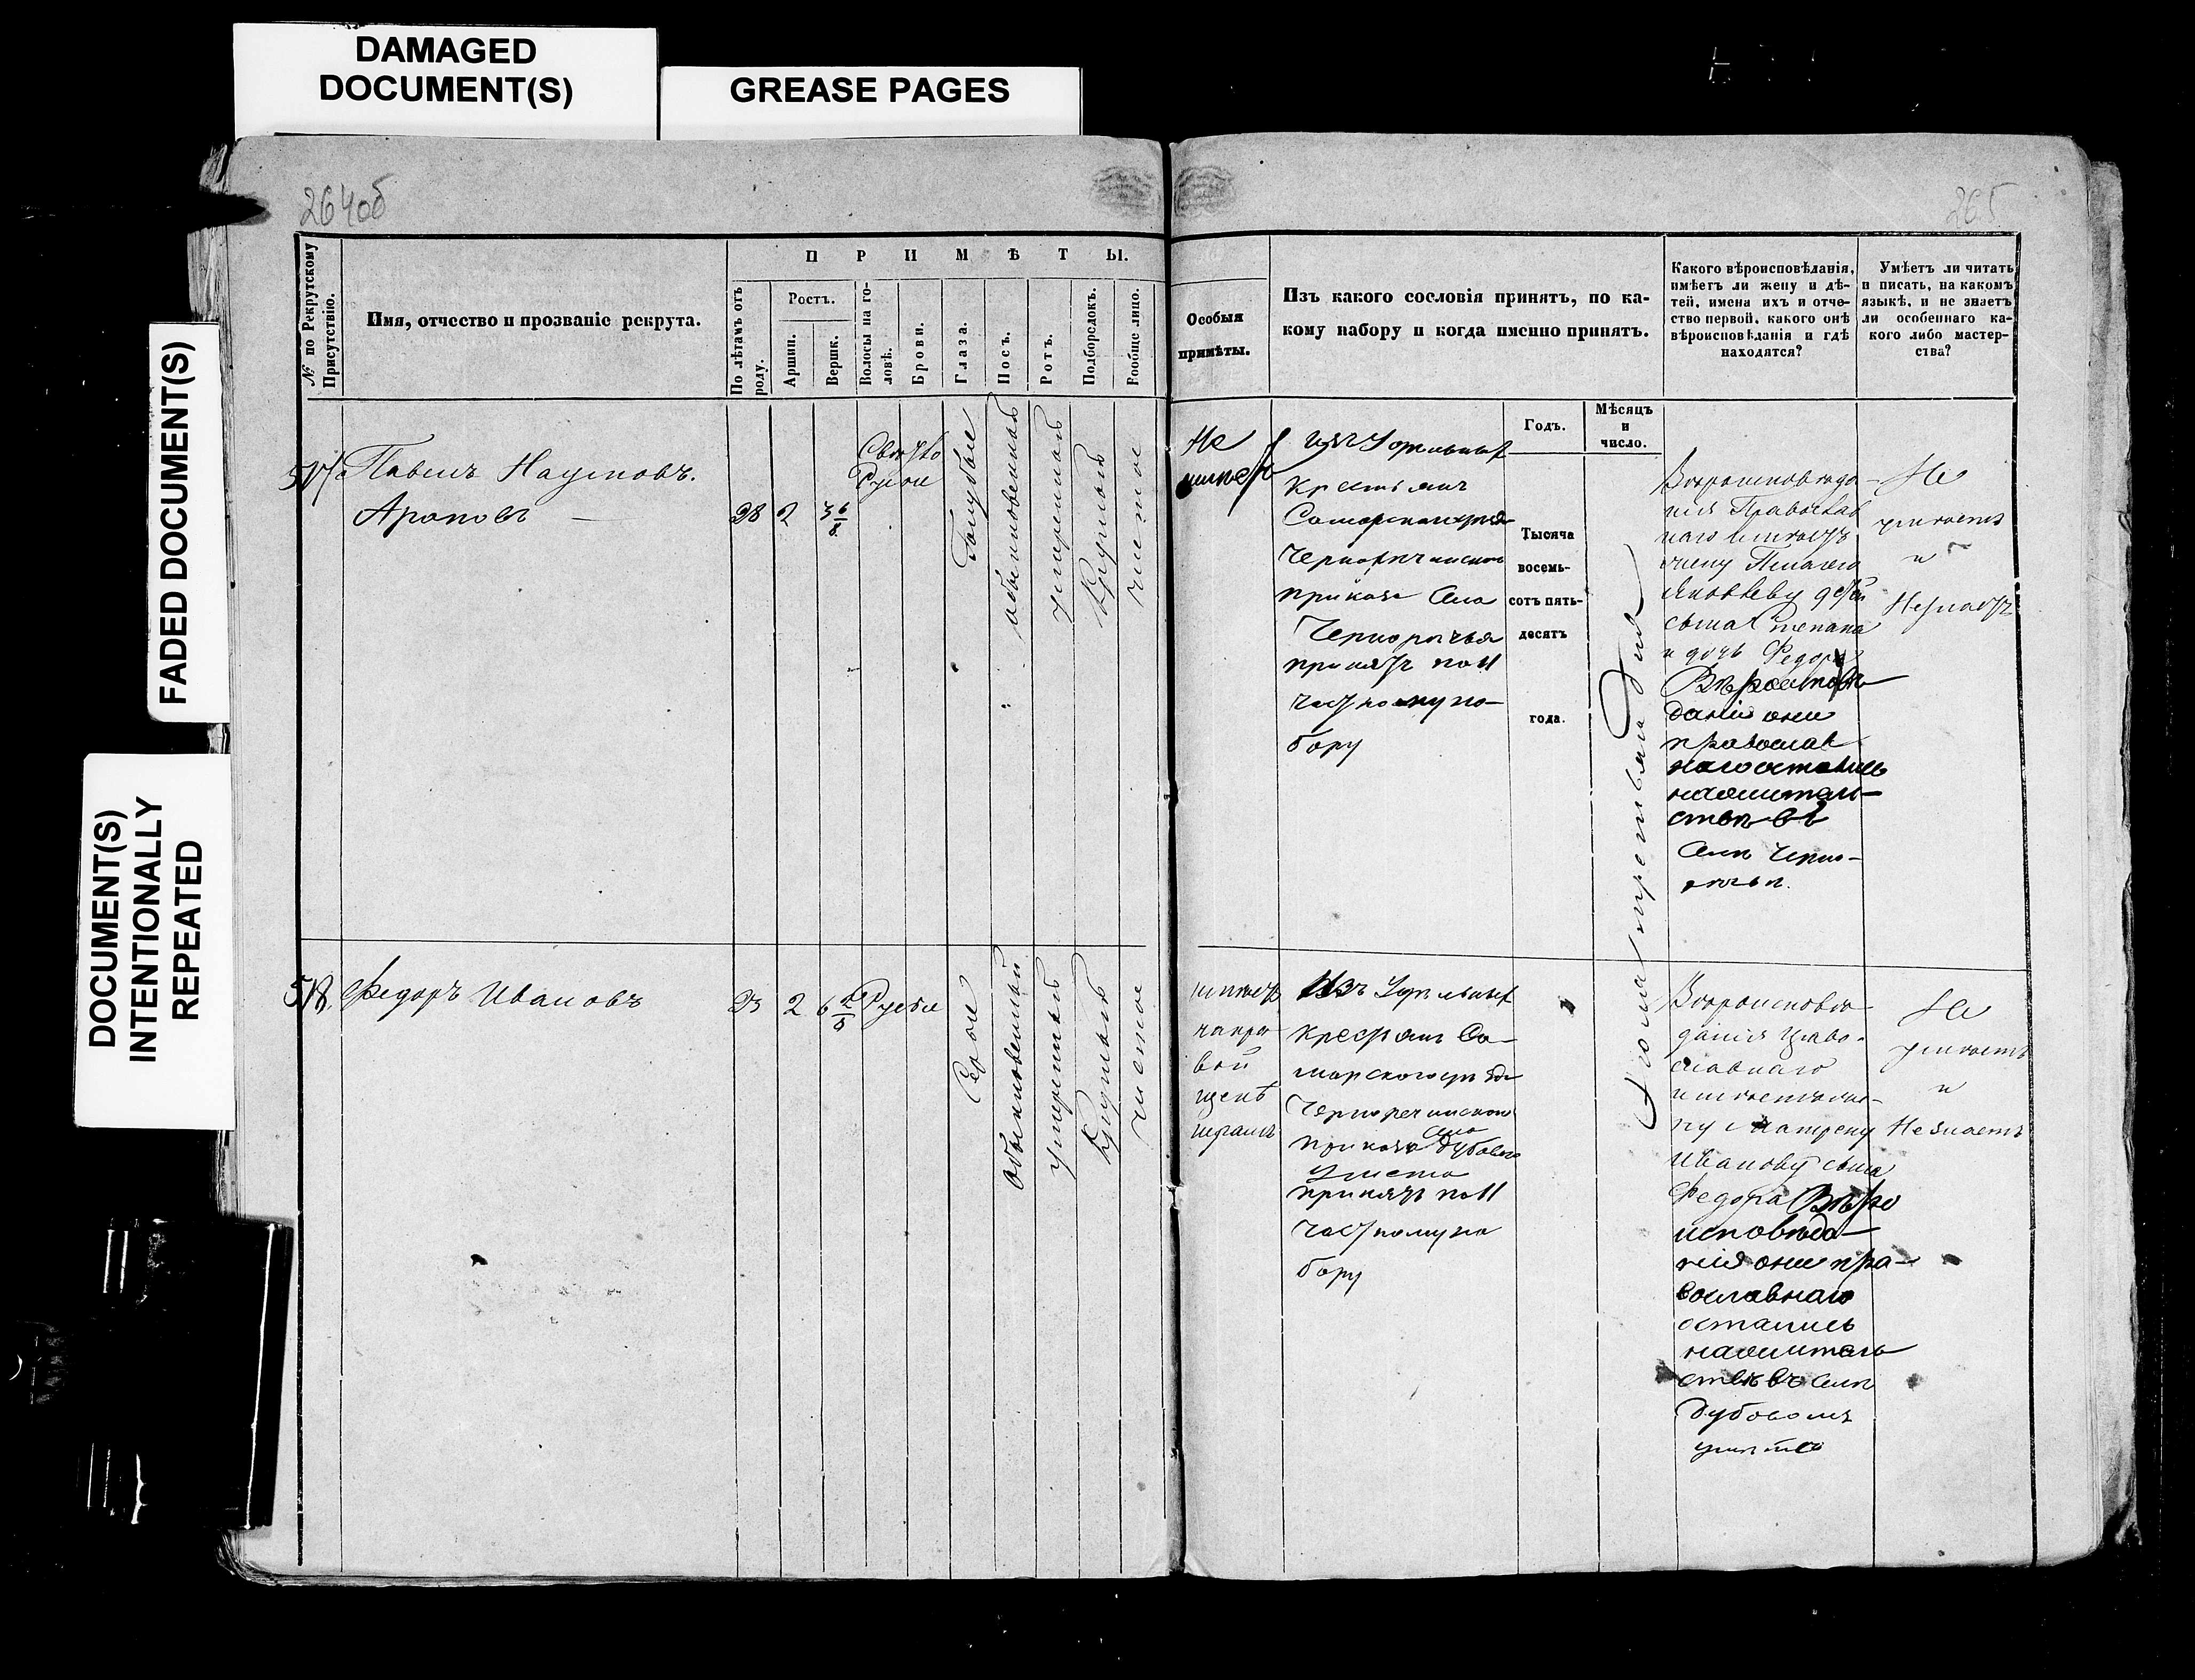 DAMAGED
DOCUMENT(S)
GREASE PAGES
FADED DOCUMENT(S)
DOCUMENT(S)
INTENTIONALLY
REPEATED
264об
265
№ по Рекрутскому
Присутствію.
Имя, отчество и прозваніе рекрута.
ПРИМѢТЫ.
По лѣтамъ отъ
роду.
Ростъ.
Аршин.
Вершк.
Волосы на го-
ловѣ.
Брови.
Глаза.
Носъ.
Ротъ.
Подбородокъ.
Вообще лицо.
Особыя
примѣты.
Изъ какого сословія принятъ, по ка-
кому набору и когда именно принятъ.
Какого вѣроисповѣданія,
имѣетъ ли жену и дѣ-
тей, имена ихъ и отче-
ство первой, какого онѣ
вѣроисповѣданія и гдѣ
находятся?
Умѣетъ ли читать
и писать, на какомъ
языкѣ, и не знаетъ
ли особеннаго ка-
кого либо мастер-
ства?
Годъ.
Мѣсяцъ
и
число.
517
Павелъ Наумовъ.
Араповъ
28
2
3 6/8
Свѣтло
Русые
Голубые
обыкновенный
умеренный
Круглый
чистое
Не
имеетъ
изъ Удельныхъ
Крестьянъ
Самарскаго уезда
Чернореченскаго
приказа Села
Черноречья
принятъ по 11
частному на-
бору
Тысяча
восемь-
сотъ пять-
десятъ
года.
Вероисповеда-
нія Православ
наго имѣетъ
жену Пелагею
Яковлеву детей
сына Степана
и дочь Федору
Вѣроисповѣ
данія они
православ
наго остались
на жительс-
ствѣ въ
Селѣ Черно-
речьи.
Не
умѣетъ
и
Незнаетъ
518
Федоръ Ивановъ
23
2
6 2/8
Русые
Серые
Обыкновенный
умеренный
Круглый
чистое
имѣетъ
на пра
вой
щекѣ
шрамъ
Изъ Удельныхъ
Крестьянъ Са-
марскаго уезда
Чернореченскаго
приказа села Дубоваго
Умета
принятъ по 11
частному на
бору
Вѣроисповѣ
данія Право-
славнаго
имѣетъ же-
ну Матрену
Иванову сына
Федора Вѣро
исповѣда-
нія они пра-
вославнаго
остались
на жительс
ствѣ въ Селѣ
Дубовомъ
уметѣ
Не
умѣетъ
и
Не знаетъ